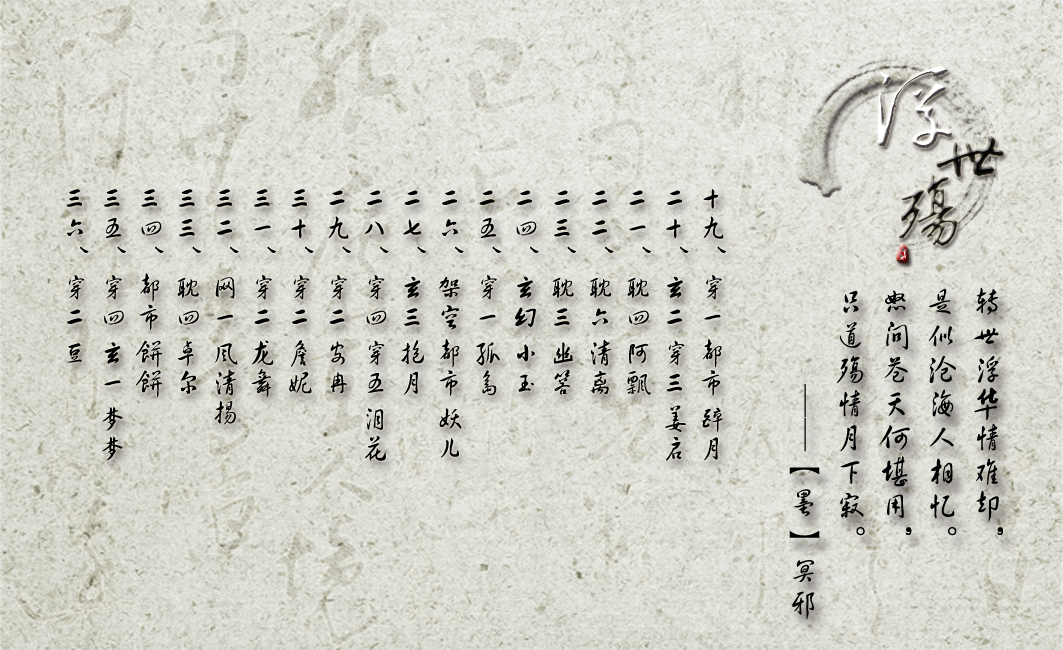 浮世殇
转世浮华情难却，
是似沧海人相忆。
愁问苍天何堪用，
只道殇情月下寂。
——【墨】冥邪
十九、穿一都市碎月
二十、玄二穿三姜启
二一、耽四阿飘
二二、耽六清离
二三、耽三幽答
二四、玄幻小玉
二五、穿一孤禽
二六、架空都市妖儿
二七、玄三抱月
二八、穿四穿五泪花
二九、穿二安冉
三十、穿二詹妮
三一、穿二龙舞
三二、网一风清扬
三三、耽四卓尔
三四、都市餅餅
三五、穿四玄一梦梦
三六、穿二亘